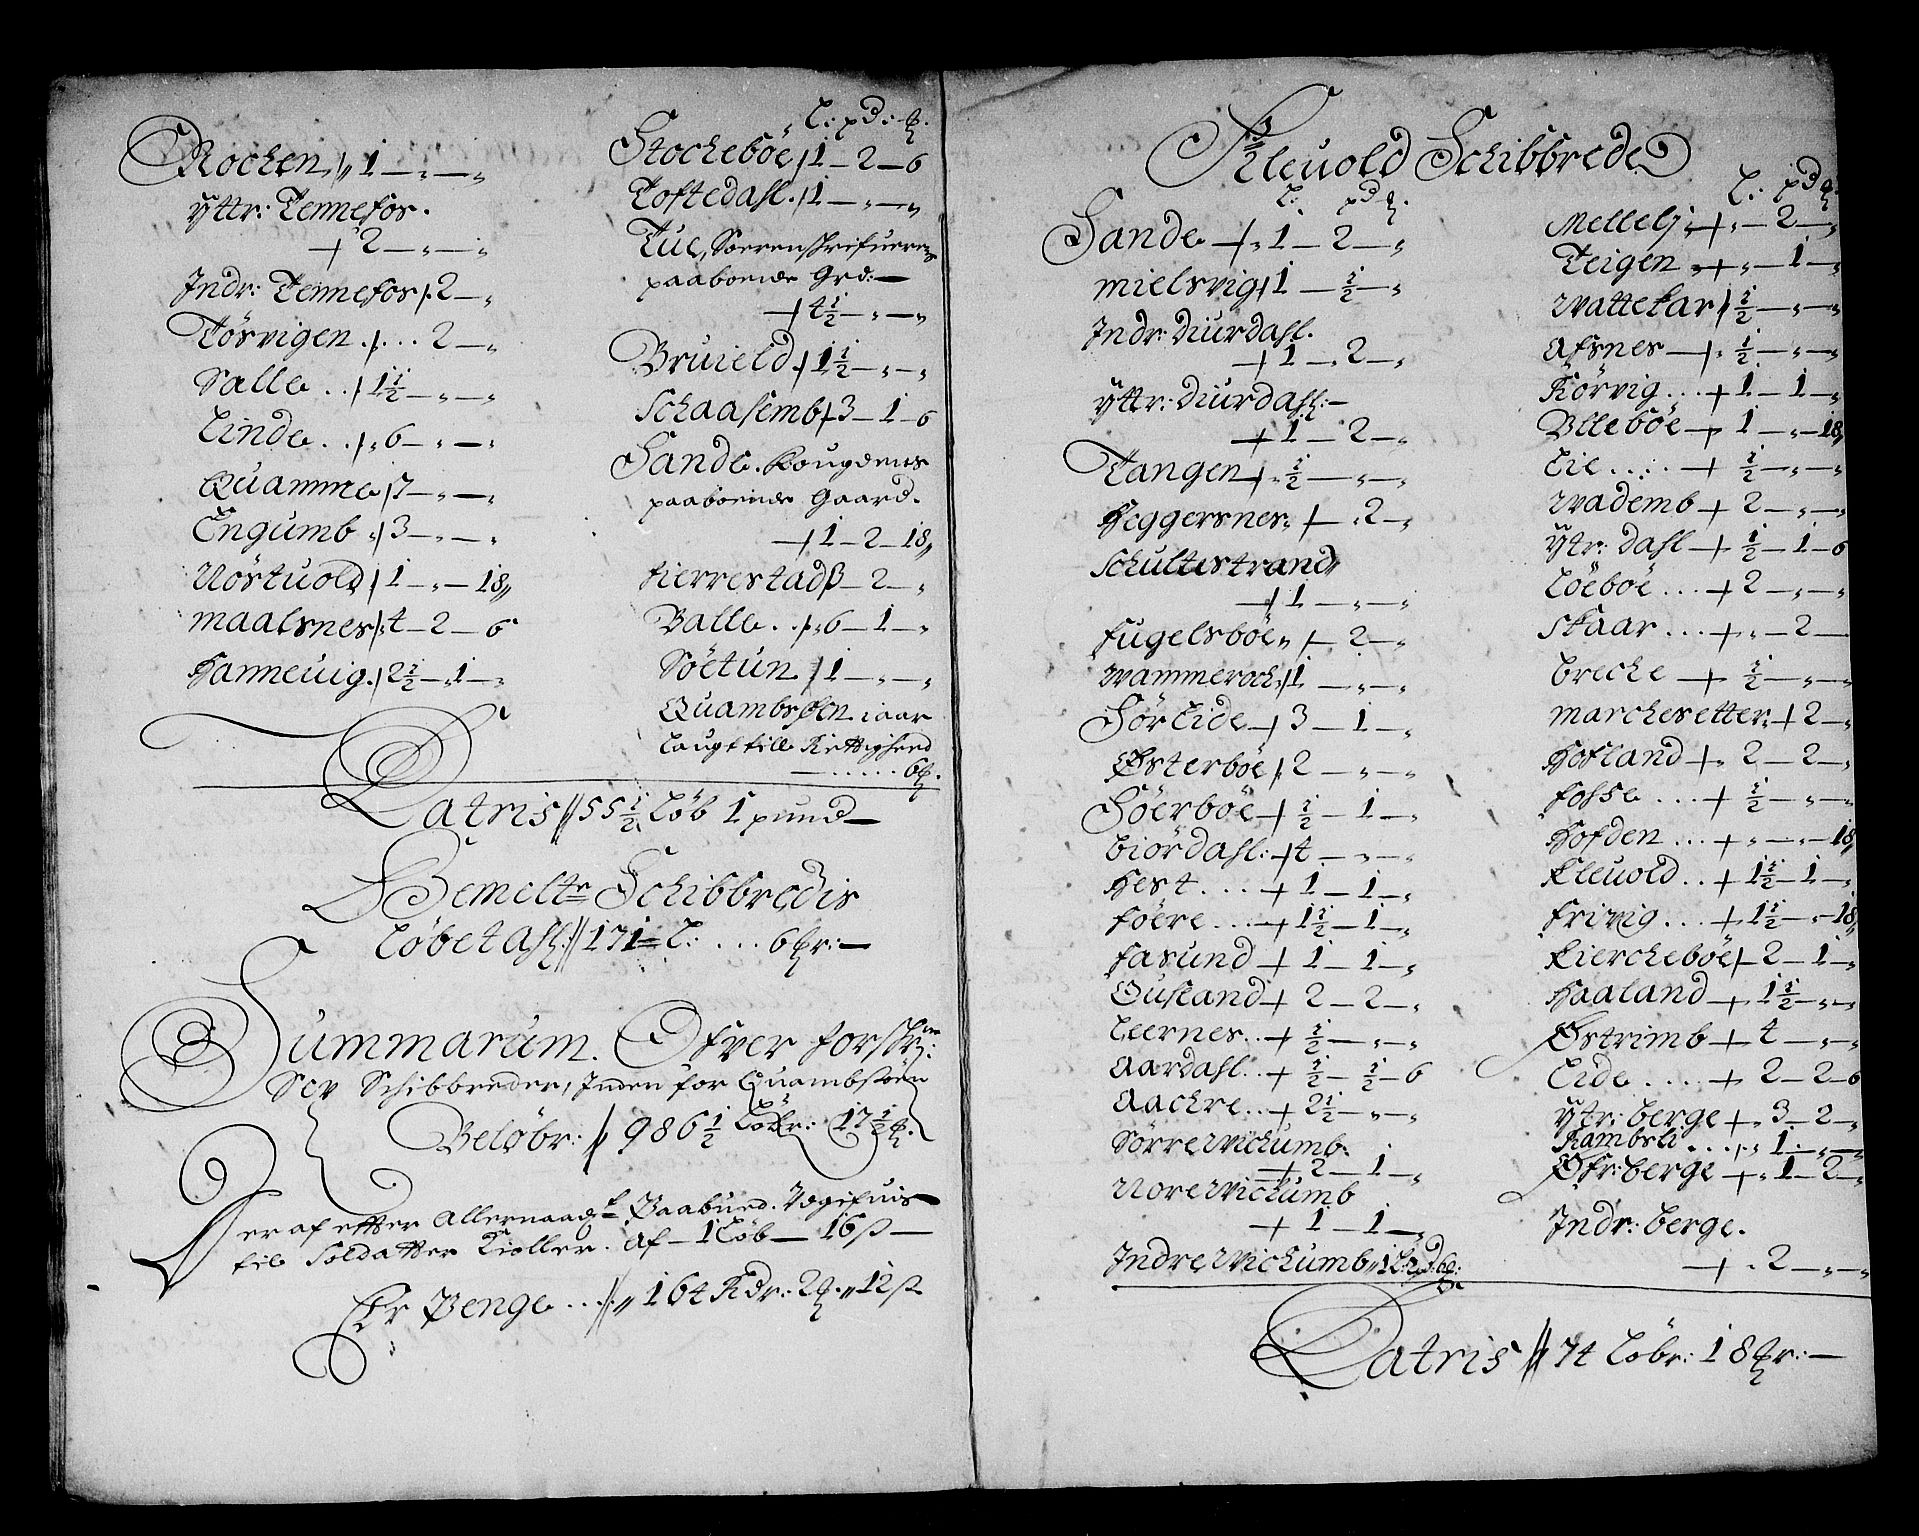 Rochen // 1 — „ — „
Yttr: Tennefos.
+ 2 — „ — „
Indr: Tennefos /. 2 — „
Tösvigen . /. ... 2 — „
Salle .. /. 1½ — „ — „
Linde .. /. 6 — „ — „
Quamme / 7 — „ — „
Engumb / 3 — „ — „
Nöstuold / 1 — „ — 18„
Maalsnes / 4 — 2 — 6
Hanneuig. / 2½ — 1 — „
L: pd: ℔.
Stocheböe / 1 — 2 — 6
Toftedahl. / 1 — „ — „
Tue, Soerenskrifuerens
paaboende Grd: —
+ 4½ — „ — „
Bruield / 1½ — „ — „
Schaasemb / 3 — 1 — 6
Sande. Fougdens
paaboende Gaard.
+ 1 — 2 — 18„
Fierrestadß — 2 — „
Balle .. /. 6 — 1 — „
Söetün / 1 — „ — „
Quambsøen iaar
Laugt till Rettighed
— ..... 6℔.
Latris // 55½ Löb 1 pund —
Bemelte Schibbredis
Löbetahl: // 171 = L: ... 6℔r: —
Summarum. Ofver forskr:
Sex Schibbreder, Inden for Quambsøen
Beløbr: // 986½ Löbr: 17½ ℔.
Der af efter Allernaadt Paabued. Udgifuis
till Soldatter Kioller. af — 1 Löb — 16 ß —
Er Penge ... // „ 164 Rdr: 2 ℔. „ 12 ß
Kleuold Schibbrede
L: pd ℔.
Sande — /. 1 — 2 — „
Mielsvig / 1 — ½ — „
Indr: Diürdahl.
+ 1 — 2 — „
Yttr: Diürdahl: —
+ 1 — 2 — „
Tangen + . ½ — „ — „
Heggersnes. + — . 2 — „
Schultestrand
+ 1 — „ — „
Fugelsböe „ + — 2 — „
Wammeroch / 1 — „ — „
Sör Eide + 3 — 1 — „
Østerböe / 2 — „ — „
Söerböe + ½ — 1 — „
Biördahl: + 4 — „ — „
Hest ... + 1 — 1 — „
Föere ... + 1½ — 1 — „
Fasund + 1 — 1 — „
Ousland + 2 — 2 — „
Leernes .. + ½ — „ — „
Aardahl .. + ½ — ½ — 6
Aachre .. + 2½ — „ — „
Sörre Wichumb.
+ 2 — 1 — „
Nore Wichumb
+ 1 — 1 — „
Indre Wichumb
L: pd ℔.
Mellelj + „ — 2 — „
Teigen + „ — 1 — „
Wattekar / ½ — „ — „
Afsnes + . ½ — „ — „
Rörvig ... + 1 — 1 — „
Ulleböe + 1 — „ — 18„
Lie .... + ½ — „ — „
Wademb + 2 — „ — „
Ytr: Dahl + ½ — 1 — 6
Löeböe ... + 2 — „ — „
Skaar ... + „ — 2 —
Breche + ½ — „ — „
Marchesetter: + 2 — „
Hofland + . 2 — 2 — „
Fosse ... + ½ — „ — „
Hofden ... + „ — „ — 18
Kleuold .. + 1½ — 1 — „
Frivig ... + 1½ — „ — 18„
Kiercheböe / — 2 — 1 — „
Haaland + 1½ — „ — „
Østrimb + 4 — „ — „
Eide .... + 2 — 2 — 6
Ytr: Berge + . 3 — 2 — „
Rambsli ... + . 1 — „ — „
Øfr: Berge + . 1 — 2 — „
Indr: Berge.
+ . 2 — „ — „
Latris // 74 Löbr: 18 ℔r: —